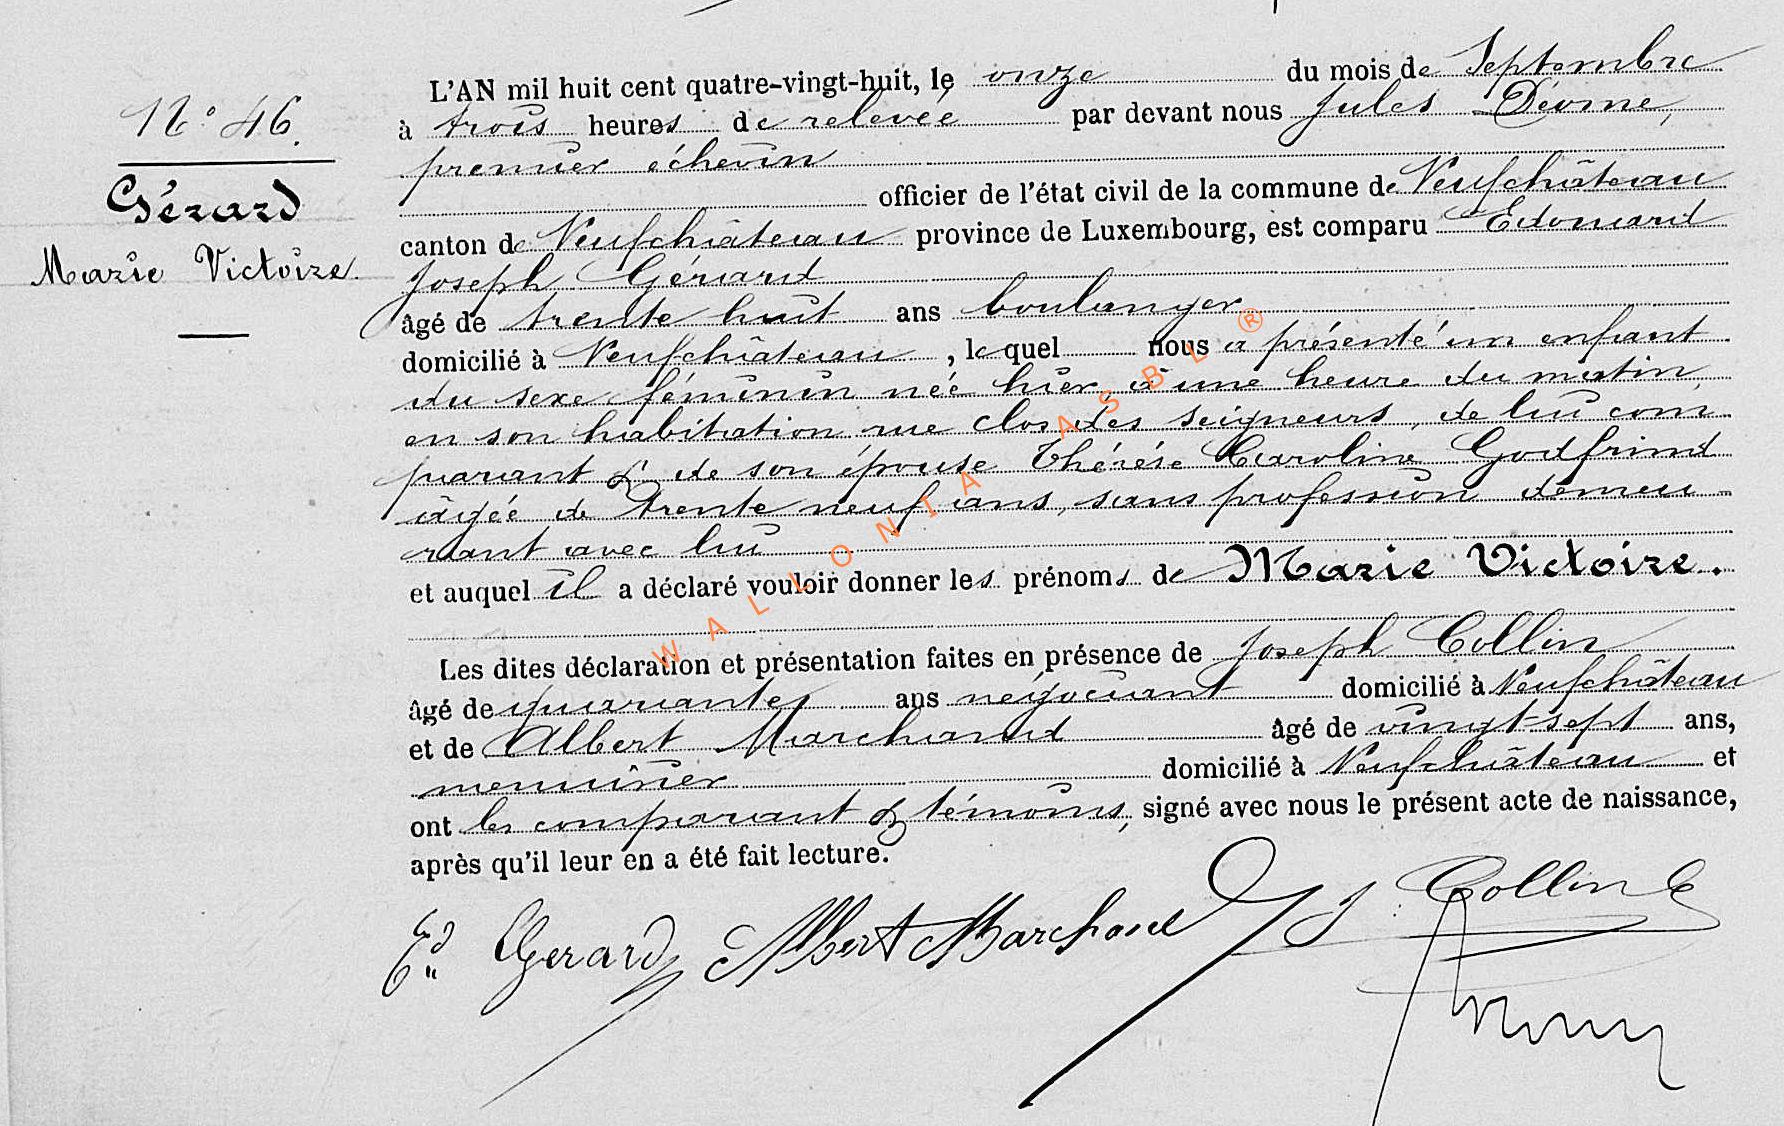 N° 46.
Gérard
Marie Victoire.
L'AN mil huit cent quatre-vingt-huit, le onze du mois de Septembre
à trois heures de relevée par devant nous Jules Déome,
premier échevin
officier de l'état civil de la commune de Neufchâteau
canton de Neufchâteau province de Luxembourg, est comparu Edouard
Joseph Gérard
âgé de trente huit ans boulanger
domicilié à Neufchâteau, lequel nous a présenté un enfant
du sexe féminin née hier, à une heure du matin,
en son habitation rue clos des seigneurs, de lui com
parant & de son épouse Thérèse Caroline Godfrind
âgée de trente neuf ans, sans profession demeu
rant avec lui
et auquel il a déclaré vouloir donner les prénoms de Marie Victoire.
Les dites déclaration et présentation faites en présence de Joseph Collin
âgé de quarante ans négociant domicilié à Neufchâteau
et de Albert Marchand âgé de vingt-sept ans,
menuisier domicilié à Neufchâteau et
ont les comparant & témoins, signé avec nous le présent acte de naissance,
après qu'il leur en a été fait lecture.
Ed Gerard Albert Marchand J Collin
WALLONIA ASBL ®